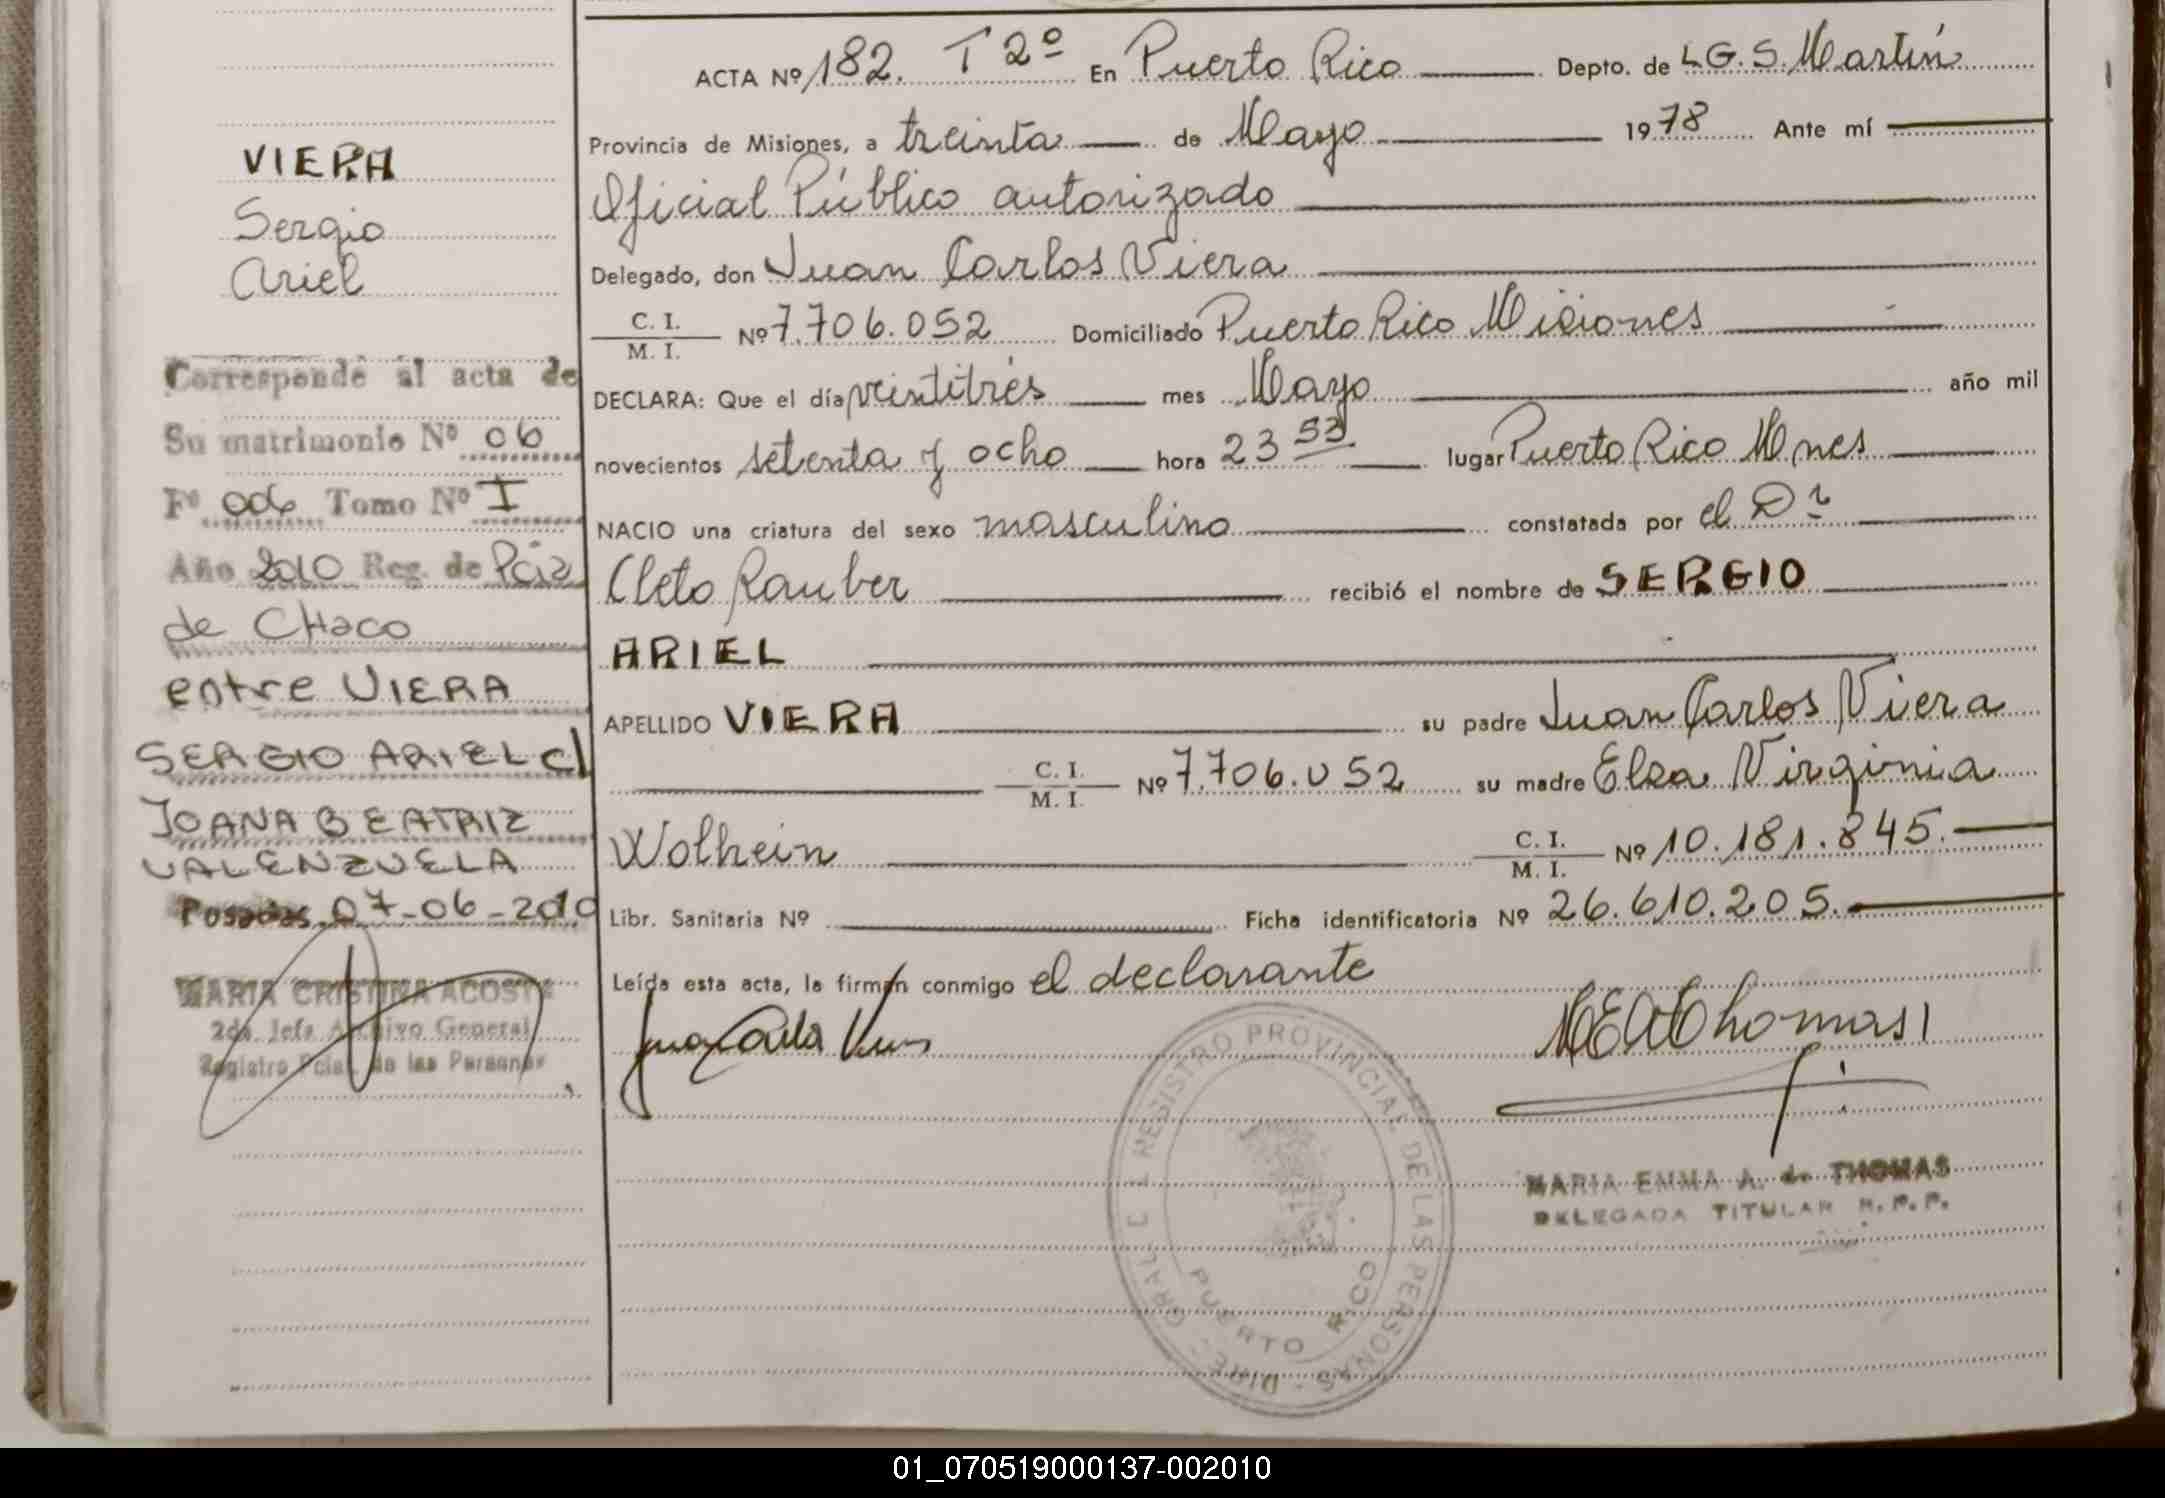 VIERA
Sergio
Ariel
Corresponde al acta de
Su matrimonio Nº 06
Fº 006 Tomo Nº I
Año 2010 Reg. de Pcia
de CHaco
entre VIERA
SERGIO ARIEL c/
JOANA BEATRIZ
VALENZUELA
Posadas 07-06-2010
MARIA CRISTINA ACOSTA
2da. Jefa Archivo General
Registro Pcial. de las Personas
ACTA Nº 182. T 2º En Puerto Rico Depto. de L G. S. Martín
Provincia de Misiones, a treinta de Mayo 1978 Ante mí
Oficial Público autorizado
Delegado, don Juan Carlos Viera
C. I. / M. I. Nº 7.706.052 Domiciliado Puerto Rico Misiones
DECLARA: Que el día veintitrés mes Mayo año mil
novecientos setenta y ocho hora 23 53 lugar Puerto Rico Mnes
NACIO una criatura del sexo masculino constatada por el Dr
Cleto Rauber recibió el nombre de SERGIO
ARIEL
APELLIDO VIERA su padre Juan Carlos Viera
C. I. / M. I. Nº 7.706.052 su madre Elsa Virginia
Wolhein C. I. / M. I. Nº 10.181.845.
Libr. Sanitaria Nº Ficha identificatoria Nº 26.610.205.
Leída esta acta, la firman conmigo el declarante
Juan Carlos Viera
MEAThomas
REGISTRO PROVINCIAL DE LAS PERSONAS - DIREC. GRAL.
PUERTO RICO
MARIA EMMA A. de THOMAS
DELEGADA TITULAR R. P. P.
01_070519000137-002010